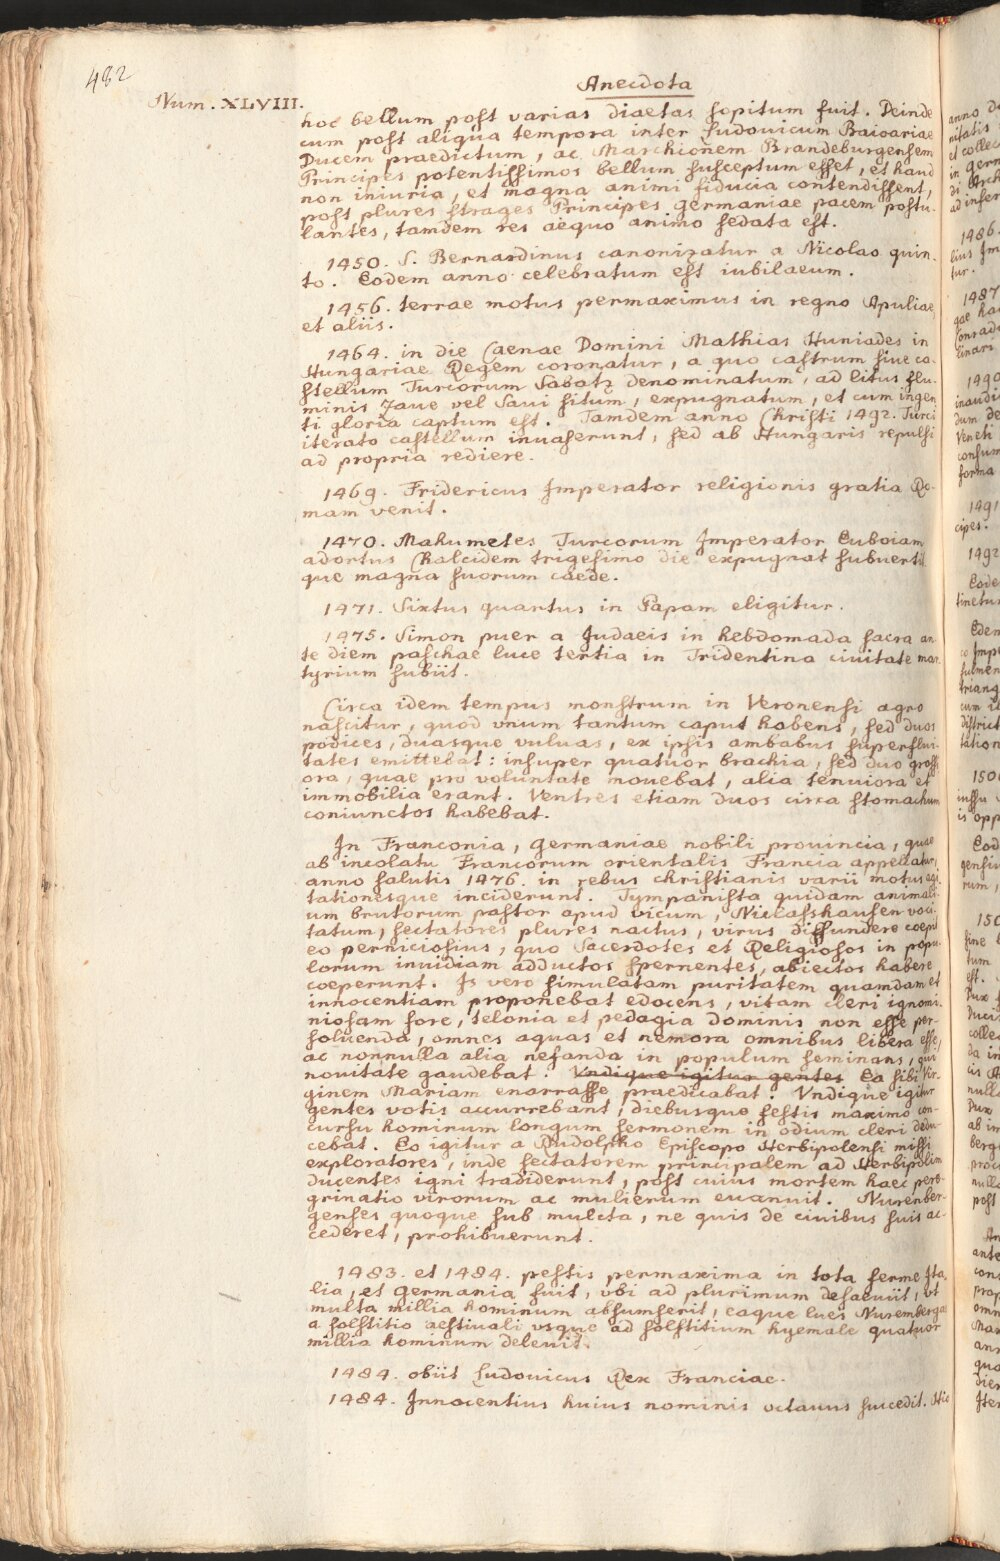 482
Anecdota
Num. XLVIII.
hoc bellum post varias diaetas sopitum fuit. Deinde
cum post aliqua tempora inter Ludovicum Baioariae
Ducem praedictum, ac Marchionem Brandeburgensem
Principes potentissimos bellum susceptum esset, et haud
non iniuria, et magna animi fiducia contendissent,
post plures strages Principes germaniae pacem postu-
lantes, tamdem res aequo animo sedata est.
1450. S. Bernardinus canonizatur a Nicolao quin-
to. Eodem anno celebratum est iubilaeum.
1456. terrae motus permaximus in regno Apuliae,
et aliis.
1464. in die Caenae Domini Mathias Huniades in
Hungariae Regem coronatur, a quo castrum siue ca-
stellum Turcorum Sabatz denominatum, ad litus flu-
minis Zaue vel Saui situm, expugnatum, et cum ingen
ti gloria captum est. Tamdem anno Christi 1492. Turci
iterato castellum inuaserunt, sed ab Hungaris repulsi
ad propria rediere.
1469. Fridericus Imperator religionis gratia Ro-
mam venit.
1470. Mahumetes Turcorum Imperator Euboiam
adortus Chalcidem trigesimo die expugnat subuertit
que magna suorum caede.
1471. Sixtus quartus in Papam eligitur.
1475. Simon puer a Judaeis in hebdomada sacra an
te diem paschae luce tertia in Tridentina ciuitate mar
tyrium subiit.
Circa idem tempus monstrum in Veronensi agro
nascitur, quod vnum tantum caput habens, sed duos
podices, duasque vuluas, ex ipsis ambabus superflui-
tates emittebat: insuper quatuor brachia, sed duo grossi
ora, quae pro voluntate mouebat, alia tenuiora et
immobilia erant. Ventres etiam duos circa stomachum
coniunctos habebat.
In Franconia, germaniae nobili prouincia, quae
ab incolatu Francorum orientalis Francia appellatur,
anno salutis 1476. in rebus christianis varii motus agi
tationesque inciderunt. Tympanista quidam animali
um brutorum pastor apud vicum, Niclasshausen voci
tatum, sectatores plures nactus, virus diffundere coepit
eo perniciosius, quo Sacerdotes et Religiosos in popu-
lorum inuidiam adductos spernentes, abiectos habere
coeperunt. Is vero simulatam puritatem quamdam et
innocentiam proponebat edocens, vitam cleri ignomi-
niosam fore, telonia et pedagia dominis non esse per-
soluenda, omnes aquas et nemora omnibus libera esse,
ac nonnulla alia nefanda in populum seminans, qui
nouitate gaudebat. Vndique igitur gentes Ea sibi Vir-
ginem Mariam enarrasse praedicabat. Vndique igitur
gentes votis accurrebant, diebusque festis maximo con-
cursu hominum longum sermonem in odium cleri dedu-
cebat. Eo igitur a Rudolpho Episcopo Herbipolensi missi
exploratores, inde sectatorem principalem ad Herbipolim
ducentes igni tradiderunt, post cuius mortem haec pere-
grinatio virorum ac mulierum euanuit. Nurenber-
genses quoque sub mulcta, ne quis de ciuibus suis ac-
cederet, prohibuerunt.
1483. et 1484. pestis permaxima in tota ferme Ita
lia, et Germania fuit, vbi ad plurimum desaeuiit, vt
multa millia hominum absumserit, eaque lues Nurembergae
a solstitio aestiuali vsque ad solstitium hyemale quatuor
millia hominum deleuit.
1484. obiit Ludouicus Rex Franciae.
1484. Innocentius huius nominis octauus succedit. Hic